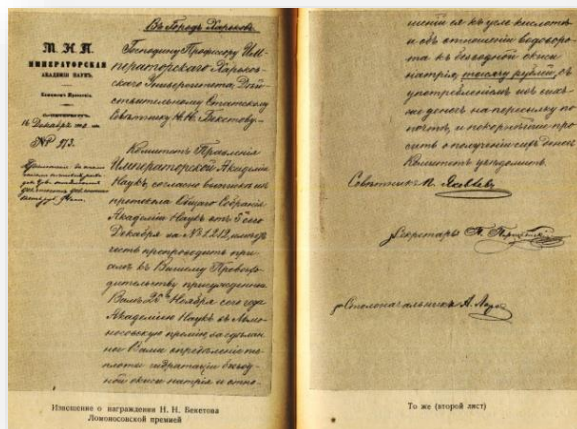 Въ Городъ Харьковъ.
М. Н. П.
ИМПЕРАТОРСКАЯ
АКАДЕМІЯ НАУКЪ.
Комитетъ Правленія
С.-ПЕТЕРБУРГЪ.
16 Декабря
№ 973.
Господину Профессору Им-
ператорскаго Харьков-
скаго Университета, Дѣй-
ствительному Статскому
Совѣтнику Н. Н. Бекетову.
Комитетъ Правленія
Императорской Академіи
Наукъ, согласно выписки изъ
протокола Общаго Собранія
Академіи Наукъ отъ 5 сего
Декабря за № 1212, имѣетъ
честь препроводить при
семъ къ Вашему Превосхо-
дительству присужденную
Вамъ 25 Ноября сего года
Академіею Наукъ въ Ломо-
носовскую премію за сдѣлан-
ное Вами опредѣленіе те-
плоты гидратаціи безвод-
ной окиси натрія и отно-
Извещение о награждении Н. Н. Бекетова
Ломоносовской премией
шеній ея къ угле кислотѣ
и объ отношеніи водоро-
та къ безводной окиси
натрія, тысячу рублей, съ
употребленіемъ изъ сихъ
же денегъ на пересылку по
почтѣ, и покорнѣйше про-
ситъ о полученіи сихъ денегъ
Комитетъ увѣдомить.
Совѣтникъ П. Яковлевъ
Секретарь
Столоначальникъ А.
То же (второй лист)